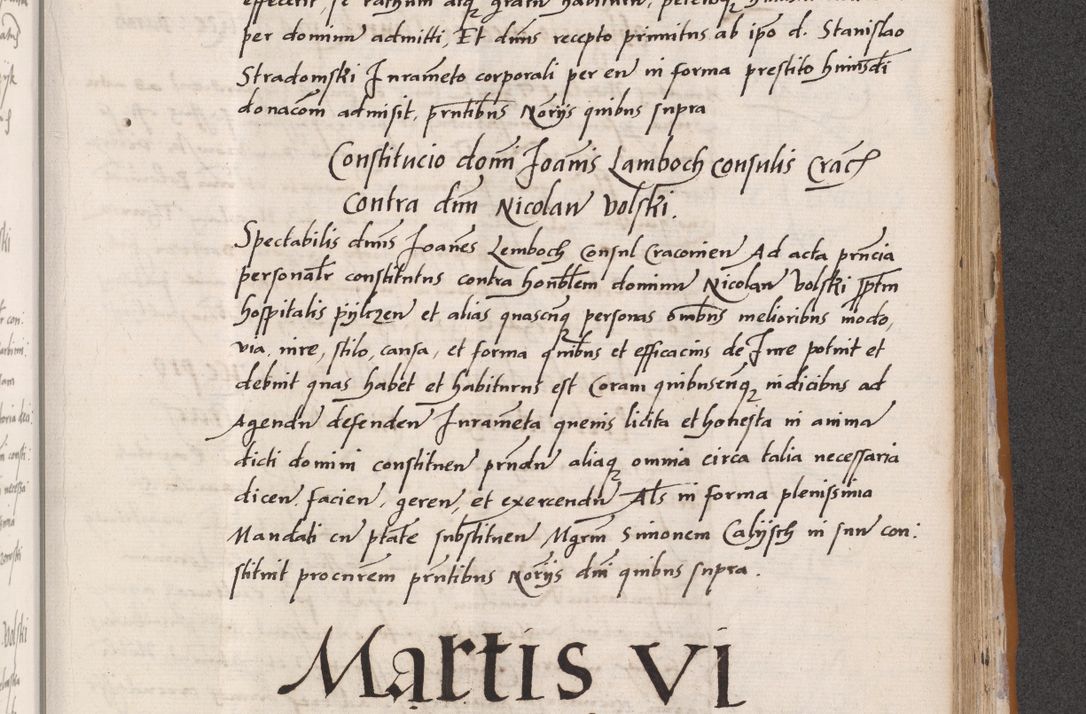 effecerit, se rathum atq gratu habiturn, petei
per dominu admitti, Et dms recepto primitus ab ipo d. Stanislao
Stradomski Jurameto corporali per eu in forma prestito huiusdi
donacom admisit, pntibus Norijs quibus supra
Constitucio domi Joanis Lamboch Consulis Crac
contra dm Nicolau Volski.
Spectabilis dms Joanes Lemboch Consul Cracouien Ad acta pncia
personalr constitutus contra honblem dominu Nicolau Volski pptm
hospitalis pijlczen et alias quascuq personas omibus melioribus modo,
via, iure, stilo, causa, et forma qibus et efficacius de Jure potuit et
debuit quas habet et habiturus est Coram quibuscuq iudicibus ad
Agendu defenden Jurameta queuis licita et honesta in anima
dicti domini constituen pndu aliaq omnia circa talia necessaria
dicen, facien, geren, et exercendu Als in forma plenissima
Mandati cu ptate substituen Mgrm Simonem Calijsch in suu con:
stituit procurem pntibus Norijs dni quibus supra.
Martis VI